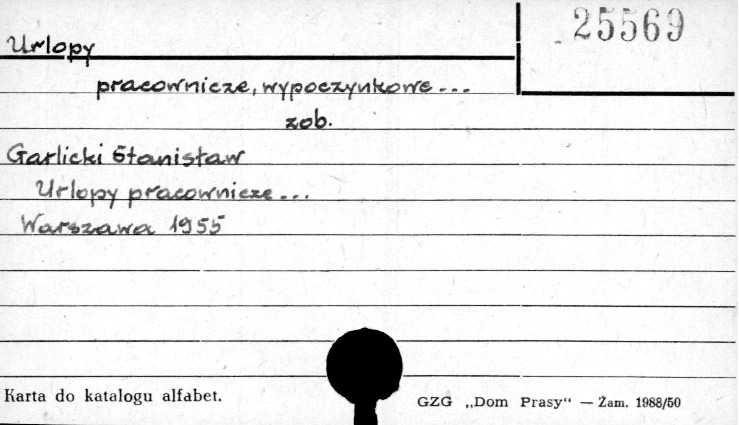 25569
Urlopy
pracownicze, wypoczynkowe...
zob.
Garlicki Stanisław
Urlopy pracownicze...
Warszawa 1955
Karta do katalogu alfabet.
GZG „Dom Prasy“ — Żam. 1988/50